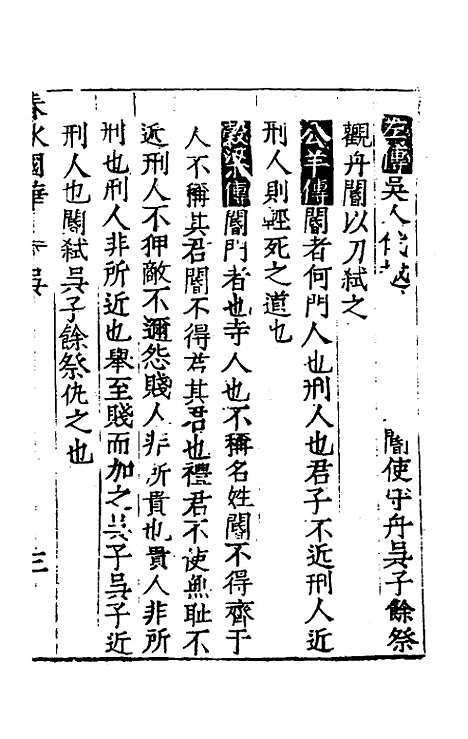 左傳吳人伐越 閽使守舟吳子餘祭
觀舟閽以刀弑之
公羊傳閽者何門人也刑人也君子不近刑人近
刑人則輕死之道也
穀梁傳閽門者也寺人也不稱名姓閽不得齊于
人不稱其君閽不得君其君也禮君不使無恥不
近刑人不狎敵不邇怨賤人非所貴也貴人非所
刑也刑人非所近也舉至賤而加之吳子吳子近
刑人也閽弑吳子餘祭仇之也
春秋國華 吳 三